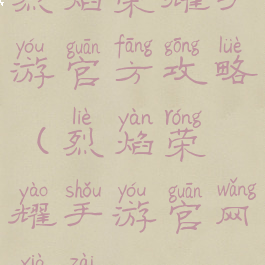 烈焰荣耀手
yóu guān fāng gōng lüè
游官方攻略
liè yàn róng
（烈焰荣
yào shǒu yóu guān wǎng
耀手游官网
xià zài